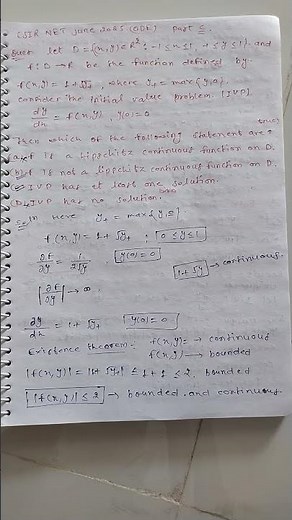 CSIR NET June 2025 (ODE) Part C
Ques Let D = {(x,y) ∈ R² : -1 ≤ x ≤ 1, -1 ≤ y ≤ 1} and
f: D → R be the function defined by
f(x,y) = 1+√y₊, where y₊ = max{y,0}.
Consider the initial value problem (IVP)
dy/dx = f(x,y), y(0) = 0
Then which of the following statement are true?
(a) f is a Lipschitz continuous function on D.
(b) f is not a Lipschitz continuous function on D.
c) IVP has at least one solution.
D) IVP has no solution.
Here y₊ = max{
f(x,y) = 1+√y₊, 0 ≤ y ≤ 1
∂f/∂y = 1/2√y y(0) = 0
1+√y → continuous
|∂f/∂y| → ∞
dy/dx = 1+√y₊ y(0) = 0
Existence theorem- f(x,y) → continuous
f(x,y) → bounded
|f(x,y)| = |1+√y₊| ≤ 1+1 ≤ 2, bounded
|f(x,y)| ≤ 2 → bounded and continuous